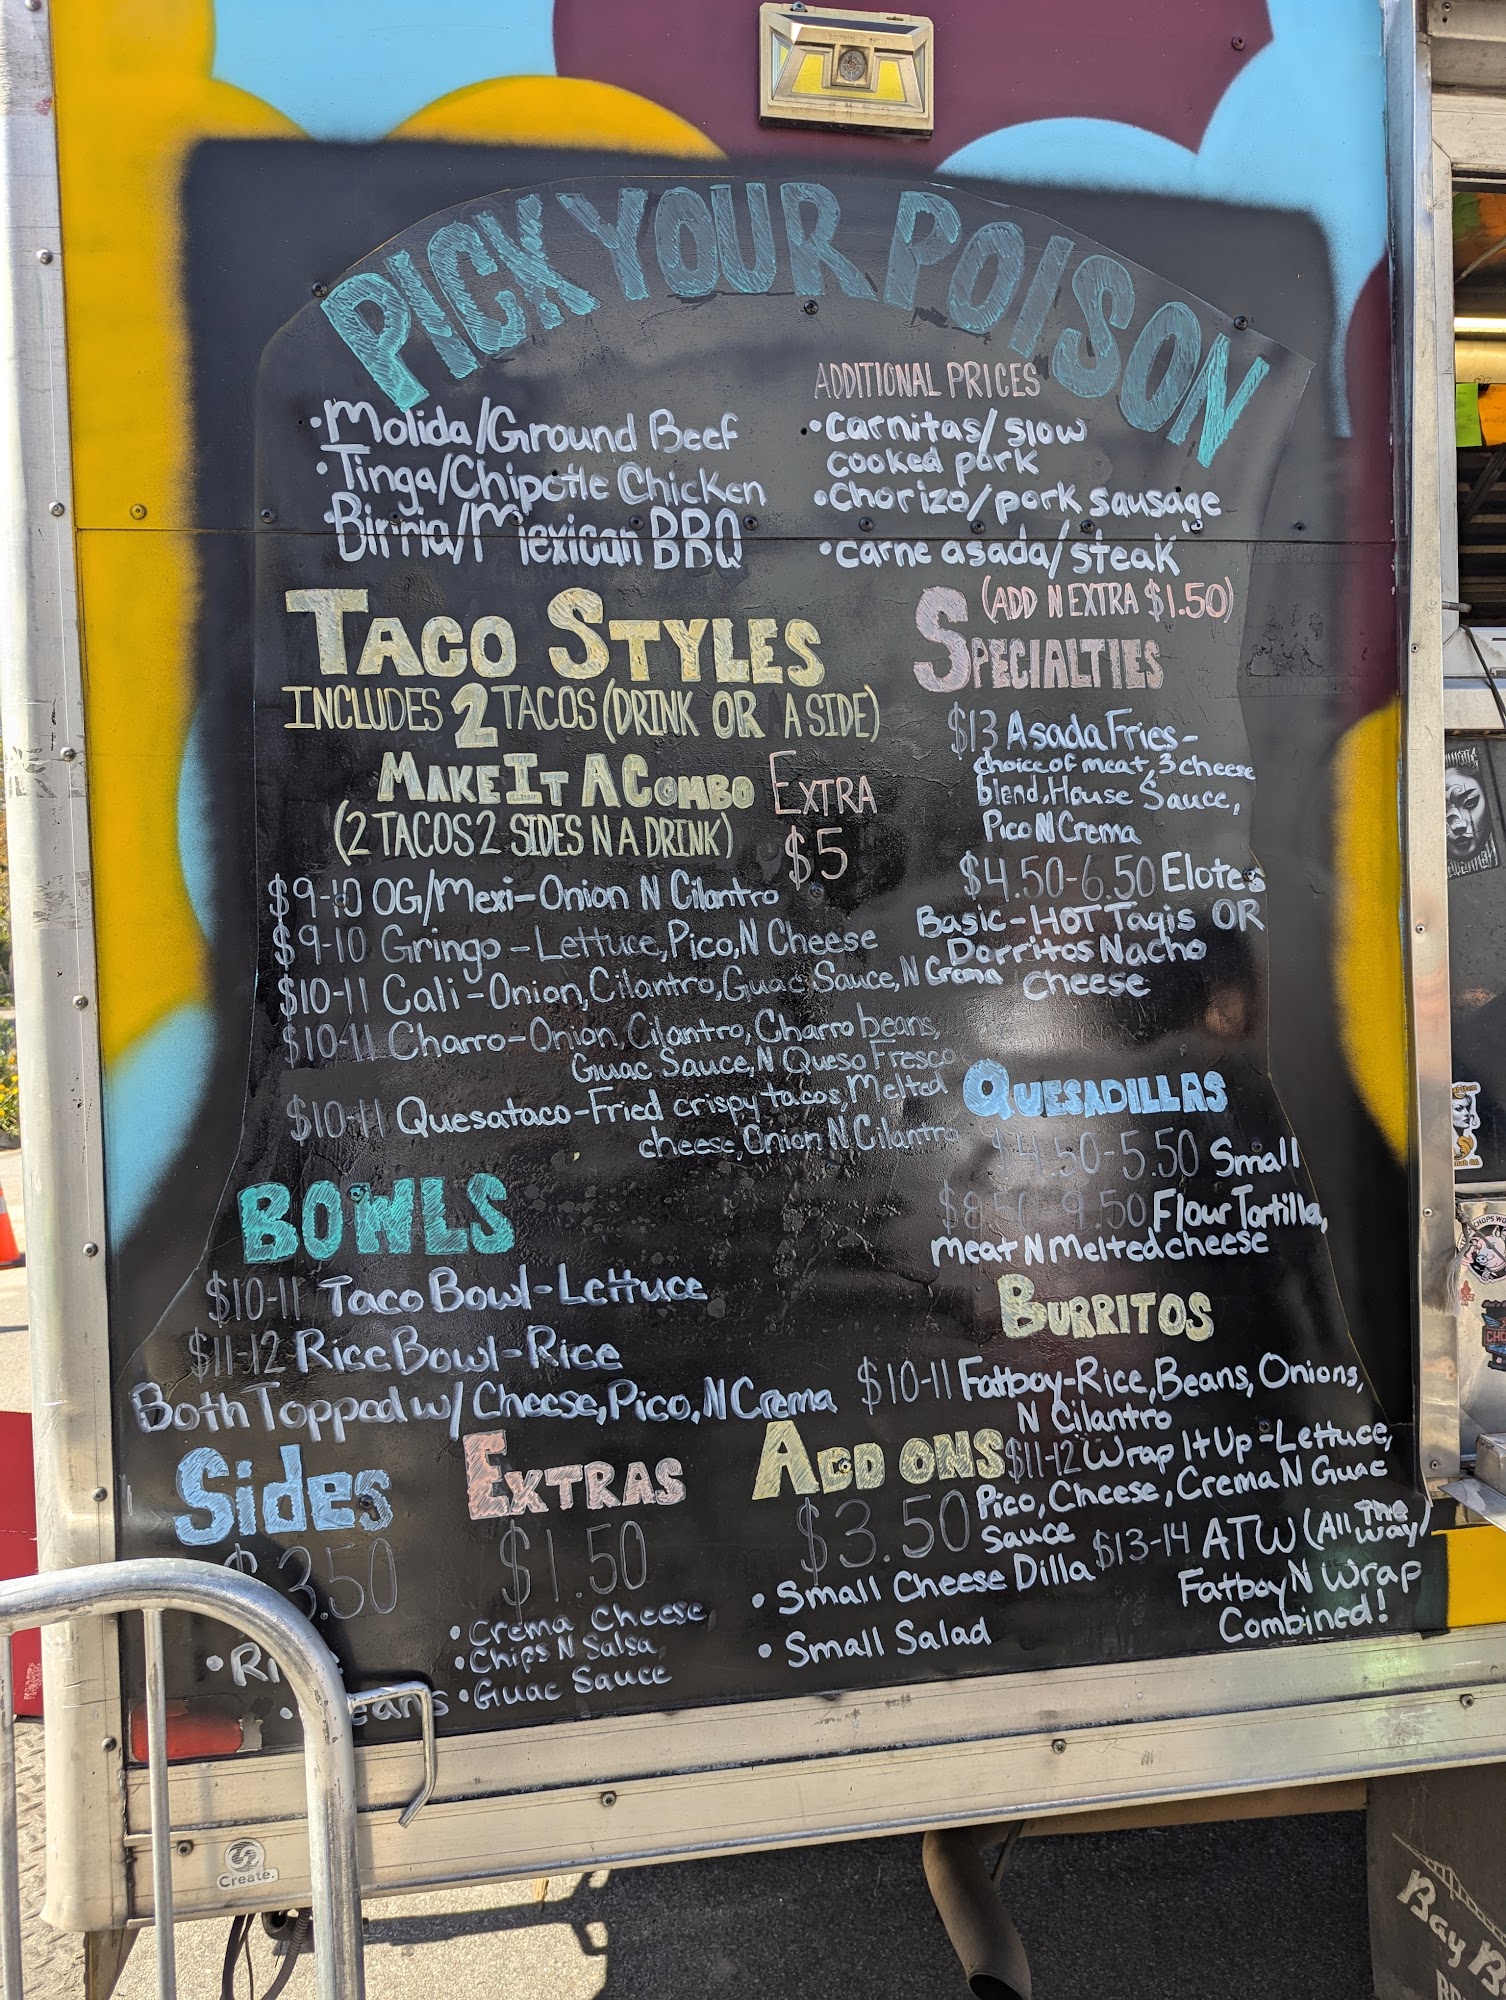 PICK YOUR POISON
• Molida/Ground Beef
• Tinga/Chipotle Chicken
• Birria/Mexican BBQ
ADDITIONAL PRICES
• Carnitas/slow
cooked pork
• Chorizo/pork sausage
• carne asada/steak
(ADD N EXTRA $1.50)
TACO STYLES
INCLUDES 2 TACOS (DRINK OR A SIDE)
MAKE IT A COMBO EXTRA
(2 TACOS 2 SIDES N A DRINK) $5
$9-10 OG/Mexi-Onion N Cilantro
$9-10 Gringo-Lettuce, Pico, N Cheese
$10-11 Cali-Onion, Cilantro, Guac Sauce, N Crema
$10-11 Charro-Onion, Cilantro, Charro beans,
Guac Sauce, N Queso Fresco
$10-11 Quesataco-Fried crispy tacos, Melted
cheese, Onion N Cilantro
SPECIALTIES
$13 Asada Fries-
choice of meat, 3 cheese
blend, House Sauce,
Pico N Crema
$4.50-6.50 Elotes
Basic-HOT Taqis OR
Dorritos Nacho
Cheese
QUESADILLAS
$4.50-5.50 Small
$8.50-9.50 Flour Tortilla,
Meat N Melted cheese
BOWLS
$10-11 Taco Bowl-Lettuce
$11-12 Rice Bowl-Rice
Both Topped w/ Cheese, Pico, N Crema
BURRITOS
$10-11 Fatboy-Rice, Beans, Onions,
N Cilantro
$11-12 Wrap It Up-Lettuce,
Pico, Cheese, Crema N Guac
Sauce
$13-14 ATW (All The Way)
Fatboy N Wrap
Combined!
Sides
$3.50
EXTRAS
$1.50
• Crema Cheese
• Chips N Salsa
• Guac Sauce
ADD ONS
$3.50
• Small Cheese Dilla
• Small Salad
Create.
Bay